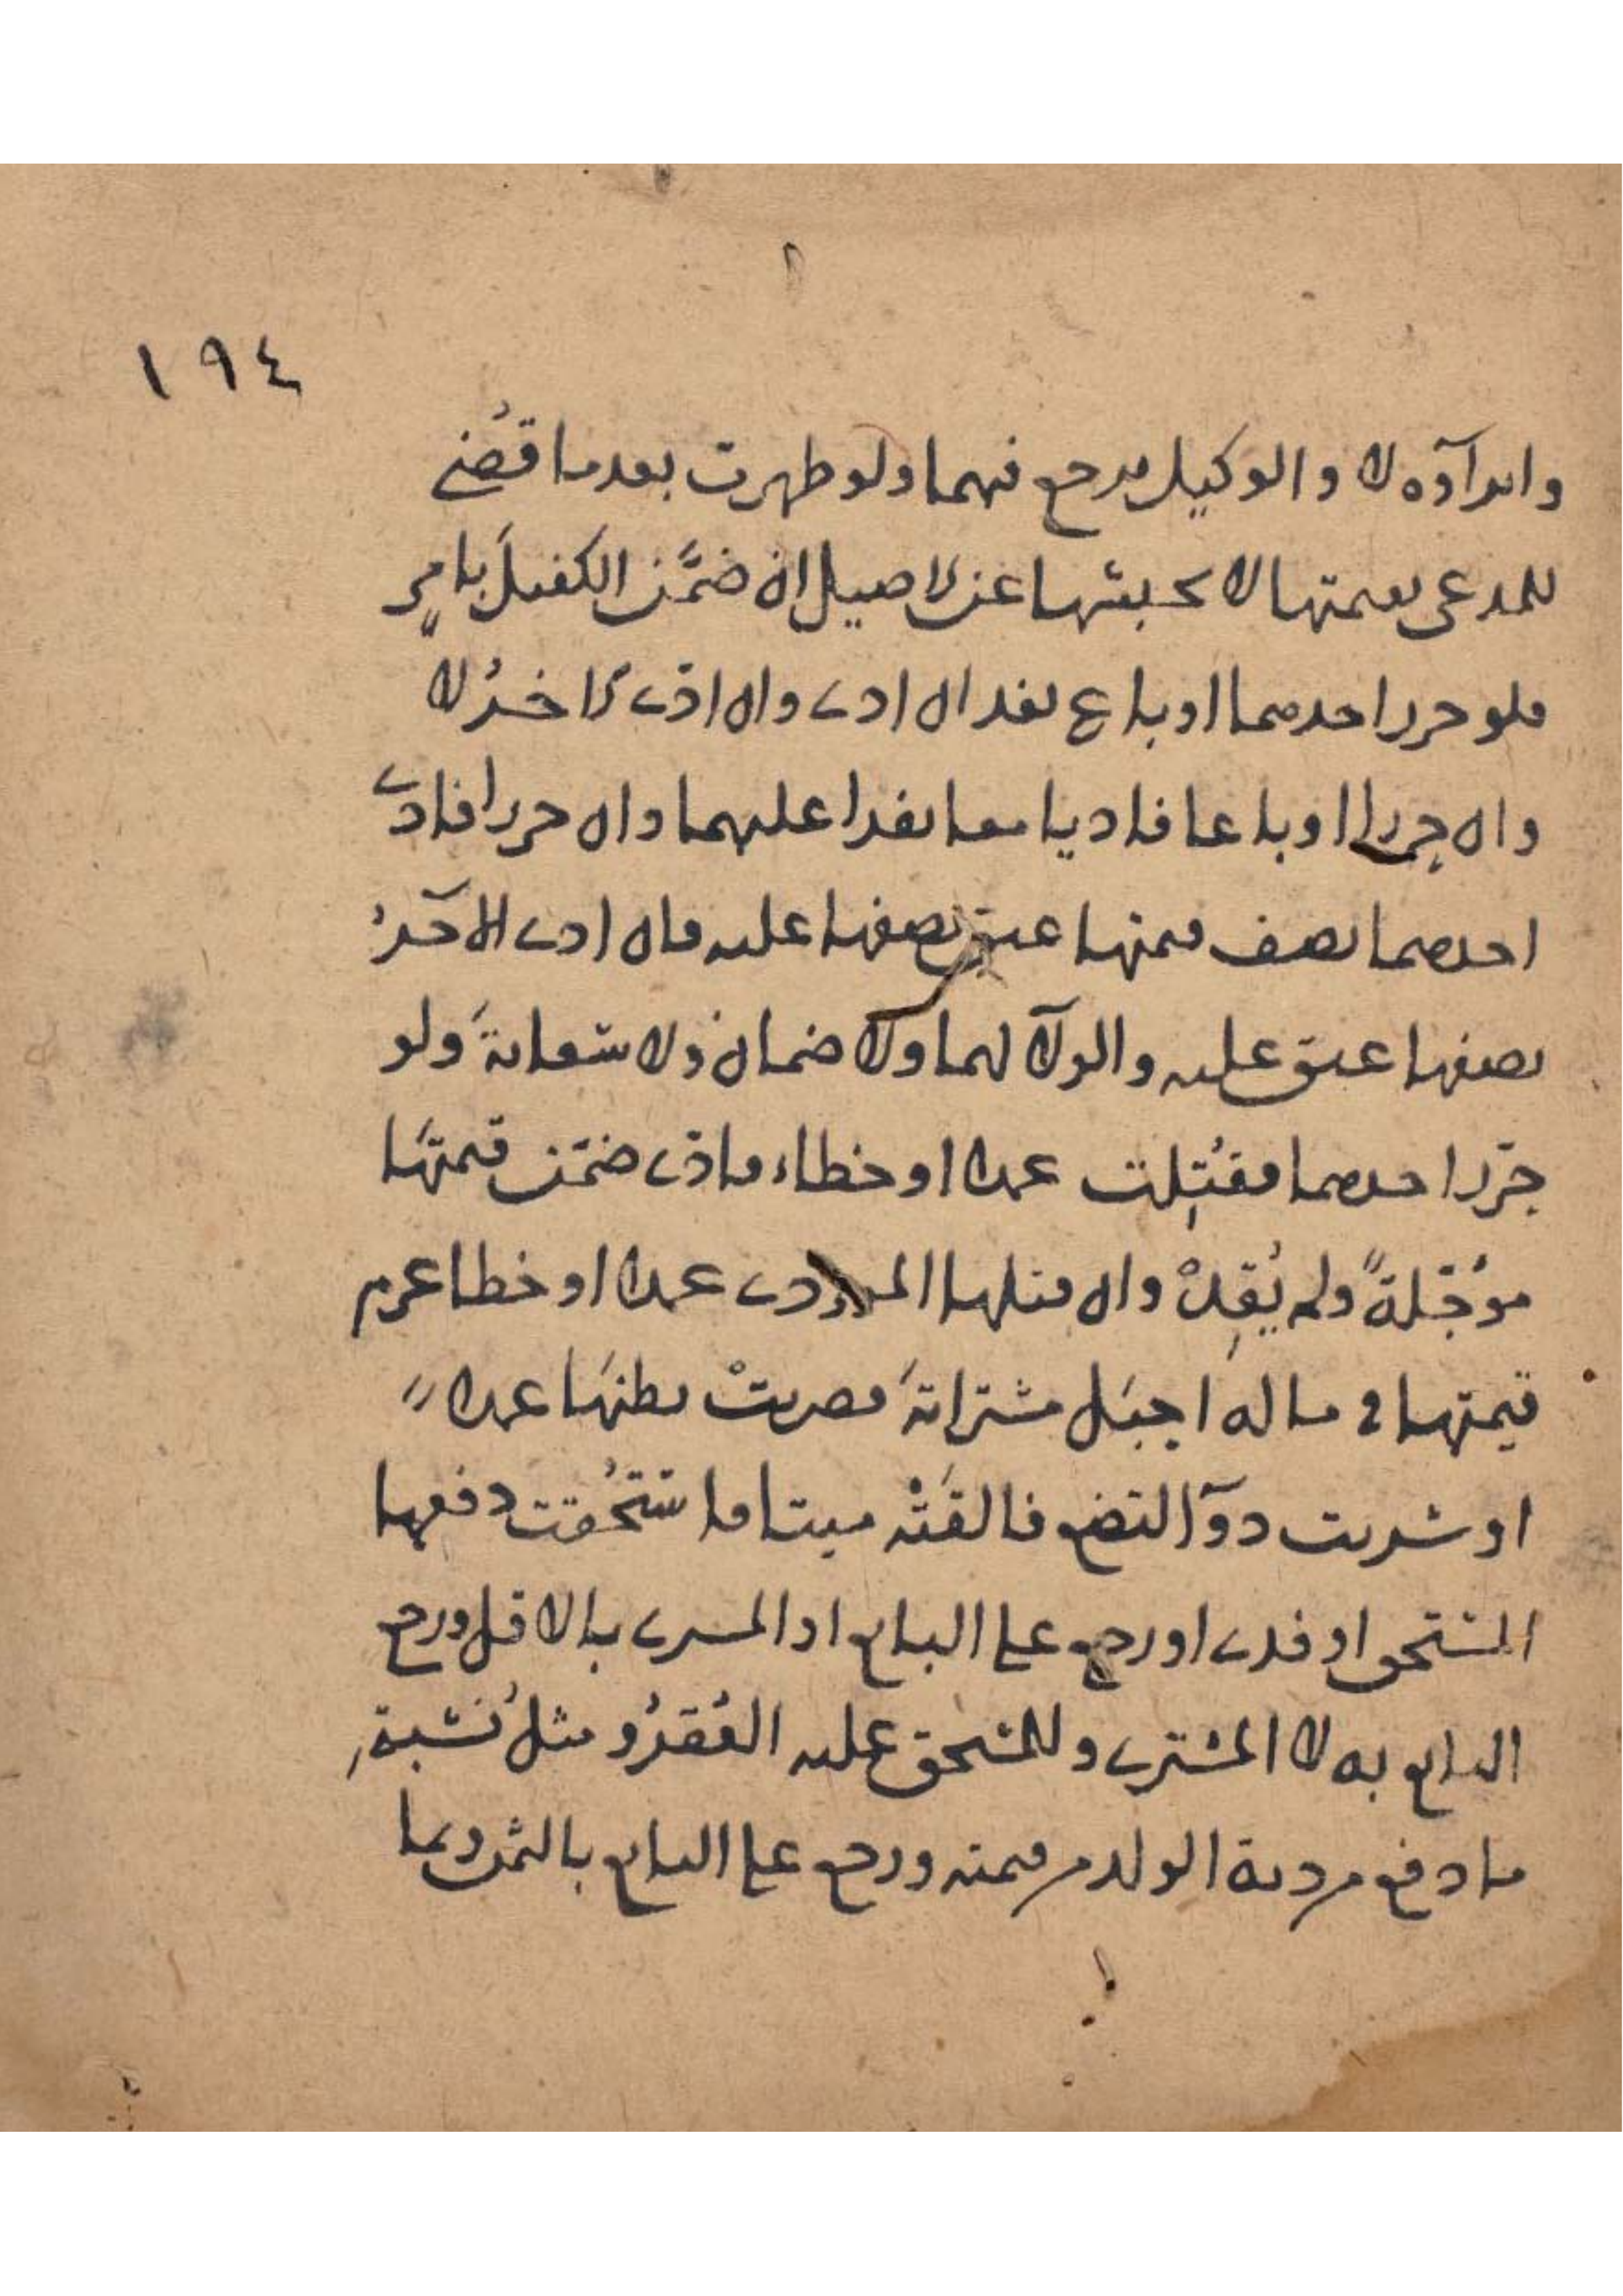 ١٩٤
وابرآوه لا والوكيل يرجع فيهما ولو ظهرت بعدما قضي
للمدعي بقيمتها لا بحبسها عن الاصيل ان ضمن الكفيل بامر
فلو حرر احدهما او باع نفذ ان ادى وان ادى الاخر لا
وان حررا او باعا فاديا معا نفذا عليهما وان حررا فادى
احدهما نصف قيمتها عتق نصفها عليه فان ادى الآخر
نصفها عتق عليه والولآ لهما ولا ضمان ولا سعاية ولو
حرر احدهما فقتلت عمدا او خطاء فادى ضمن قيمتها
مؤجلة ولم يقد وان قتلها المودى عمدا او خطا غرم
قيمتها في ماله احبل مشتراته فضربت بطنها عمدا
او شربت دوآ لتضع فالقته ميتا فاستحقت دفعها
المستحق او فدى او رجع على البايع او المشترى بالاقل ورجع
البايع به لا المشترى وللمستحق عليه العقر و مثل نسبة
ما دفع من دية الولد من قيمته ورجع على البايع بالثمن وبما